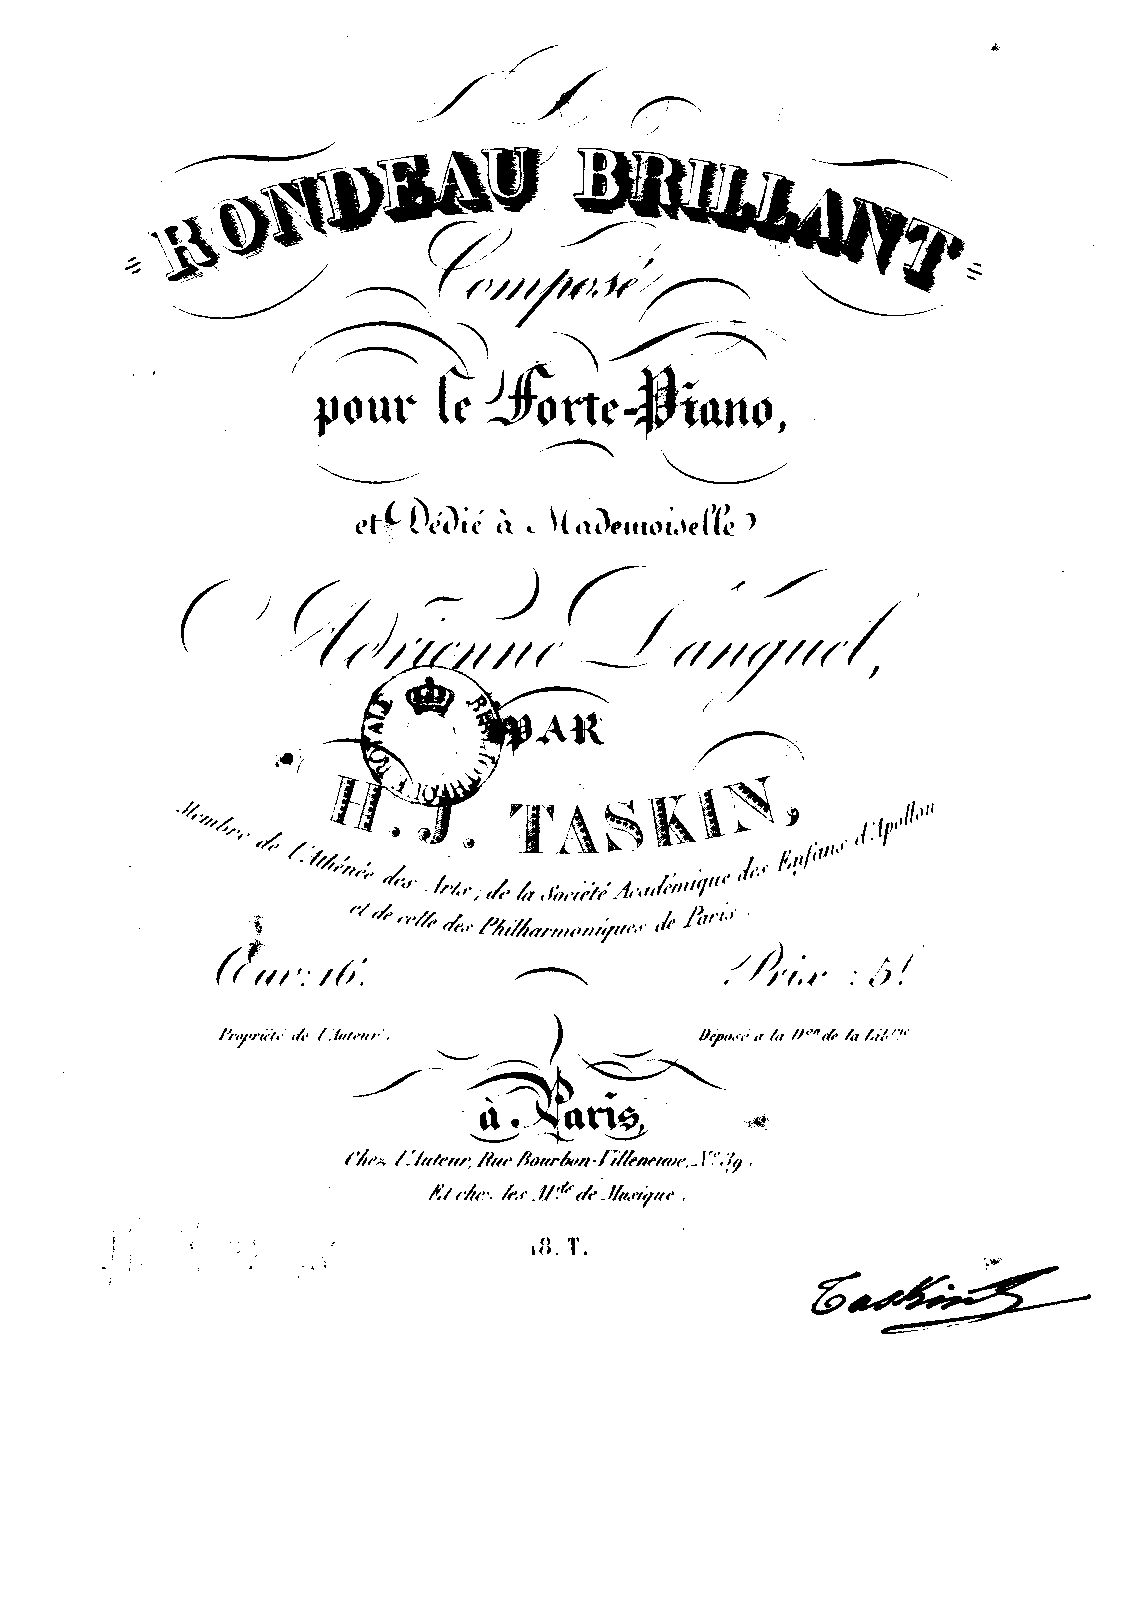 RONDEAU BRILLANT
Composé
pour le Forte-Piano,
et Dédié à Mademoiselle
Adrienne Languel,
BIBLIOTHÈQUE ROYALE
PAR
H. J. TASKIN,
Membre de l'Athénée des Arts, de la Société Académique des Enfans d'Apollon
et de celle des Philharmoniques de Paris.
Œuv: 16. Prix : 5f
Propriété de l'Auteur. Déposé a la Don de la Librie
à Paris,
Chez l'Auteur, Rue Bourbon-Villeneuve, No 39.
Et chez les Mds de Musique.
18. T.
Taskin